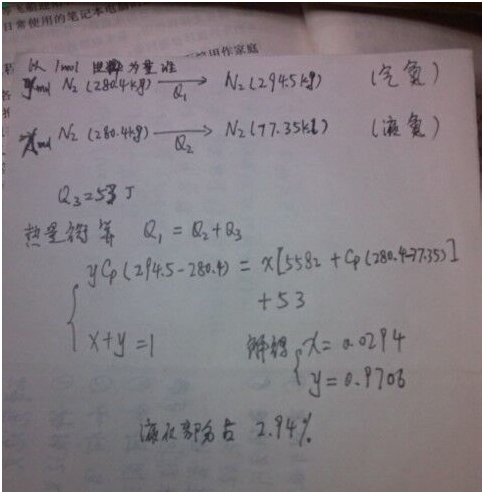 日常使用的笔记本电脑
用作家庭
以 1mol 为基准
ymol N₂(280.4kg) →Q₁ N₂(294.5kg) (气氮)
xmol N₂(280.4kg) →Q₂ N₂(77.35kg) (液氮)
Q₃=53 J
热量衡算 Q₁ = Q₂+Q₃
yCp(294.5-280.4) = x[5582 + Cp(280.4-77.35)]
+53
x+y=1 解得 x=0.0294
y=0.9706
液化部分占 2.94%